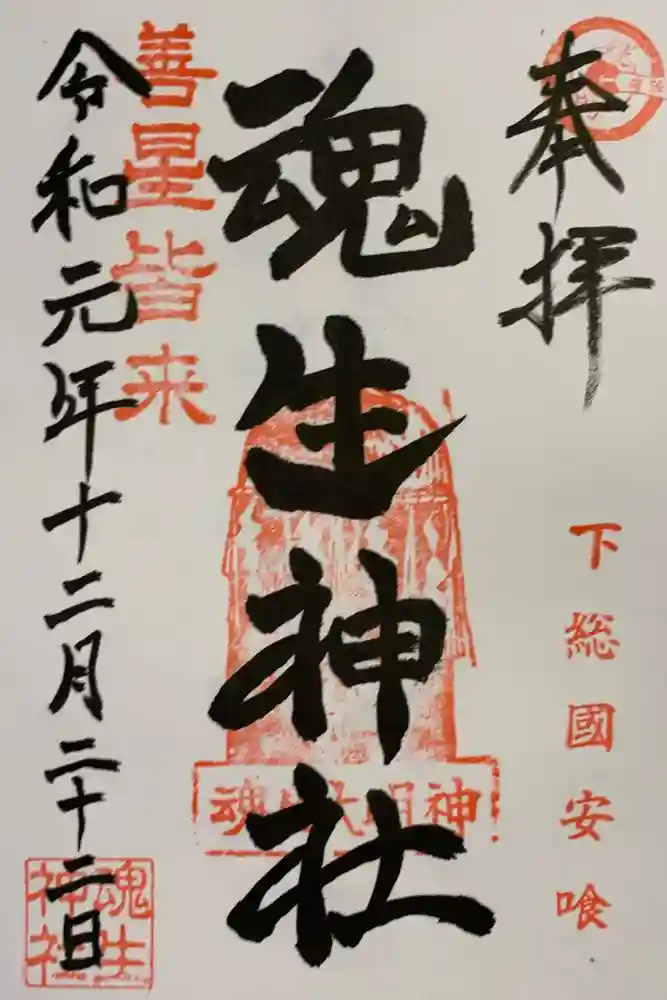 奉拝
下総國安喰
魂生神社
魂生大明神
善星皆来
令和元年十二月二十二日
魂生
神社